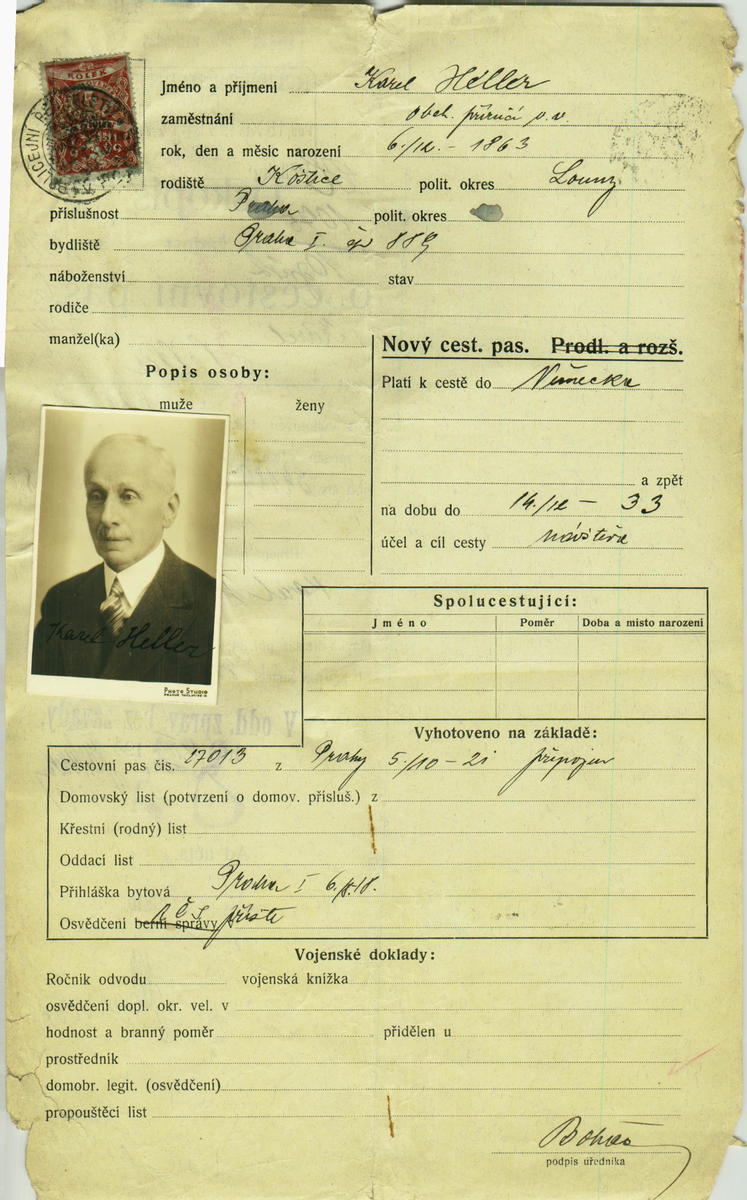 KOLEK
POLICEJNÍ
Jméno a příjmení Karel Heller
zaměstnání obch. příručí v. v.
rok, den a měsíc narození 6./12. - 1863
rodiště Koštice polit. okres Louny
příslušnost Praha polit. okres
bydliště Praha I. čp 889
náboženství stav
rodiče
manžel(ka)
Nový cest. pas. Prodl. a rozš.
Popis osoby:
Platí k cestě do Německa
muže ženy
a zpět
na dobu do 14./12 - 33
účel a cíl cesty návštěva
Karel Heller
PHOTO STUDIO
Spolucestující:
Jméno Poměr Doba a místo narození
Vyhotoveno na základě:
Cestovní pas čís. 17013 z Prahy 5./10 - 21 připojen
Domovský list (potvrzení o domov. přísluš.) z
Křestní (rodný) list
Oddací list
Přihláška bytová Praha I
Osvědčení berní správy
Vojenské doklady:
Ročník odvodu vojenská knížka
osvědčení dopl. okr. vel. v
hodnost a branný poměr přidělen u
prostředník
domobr. legit. (osvědčení)
propouštěcí list
podpis úředníka